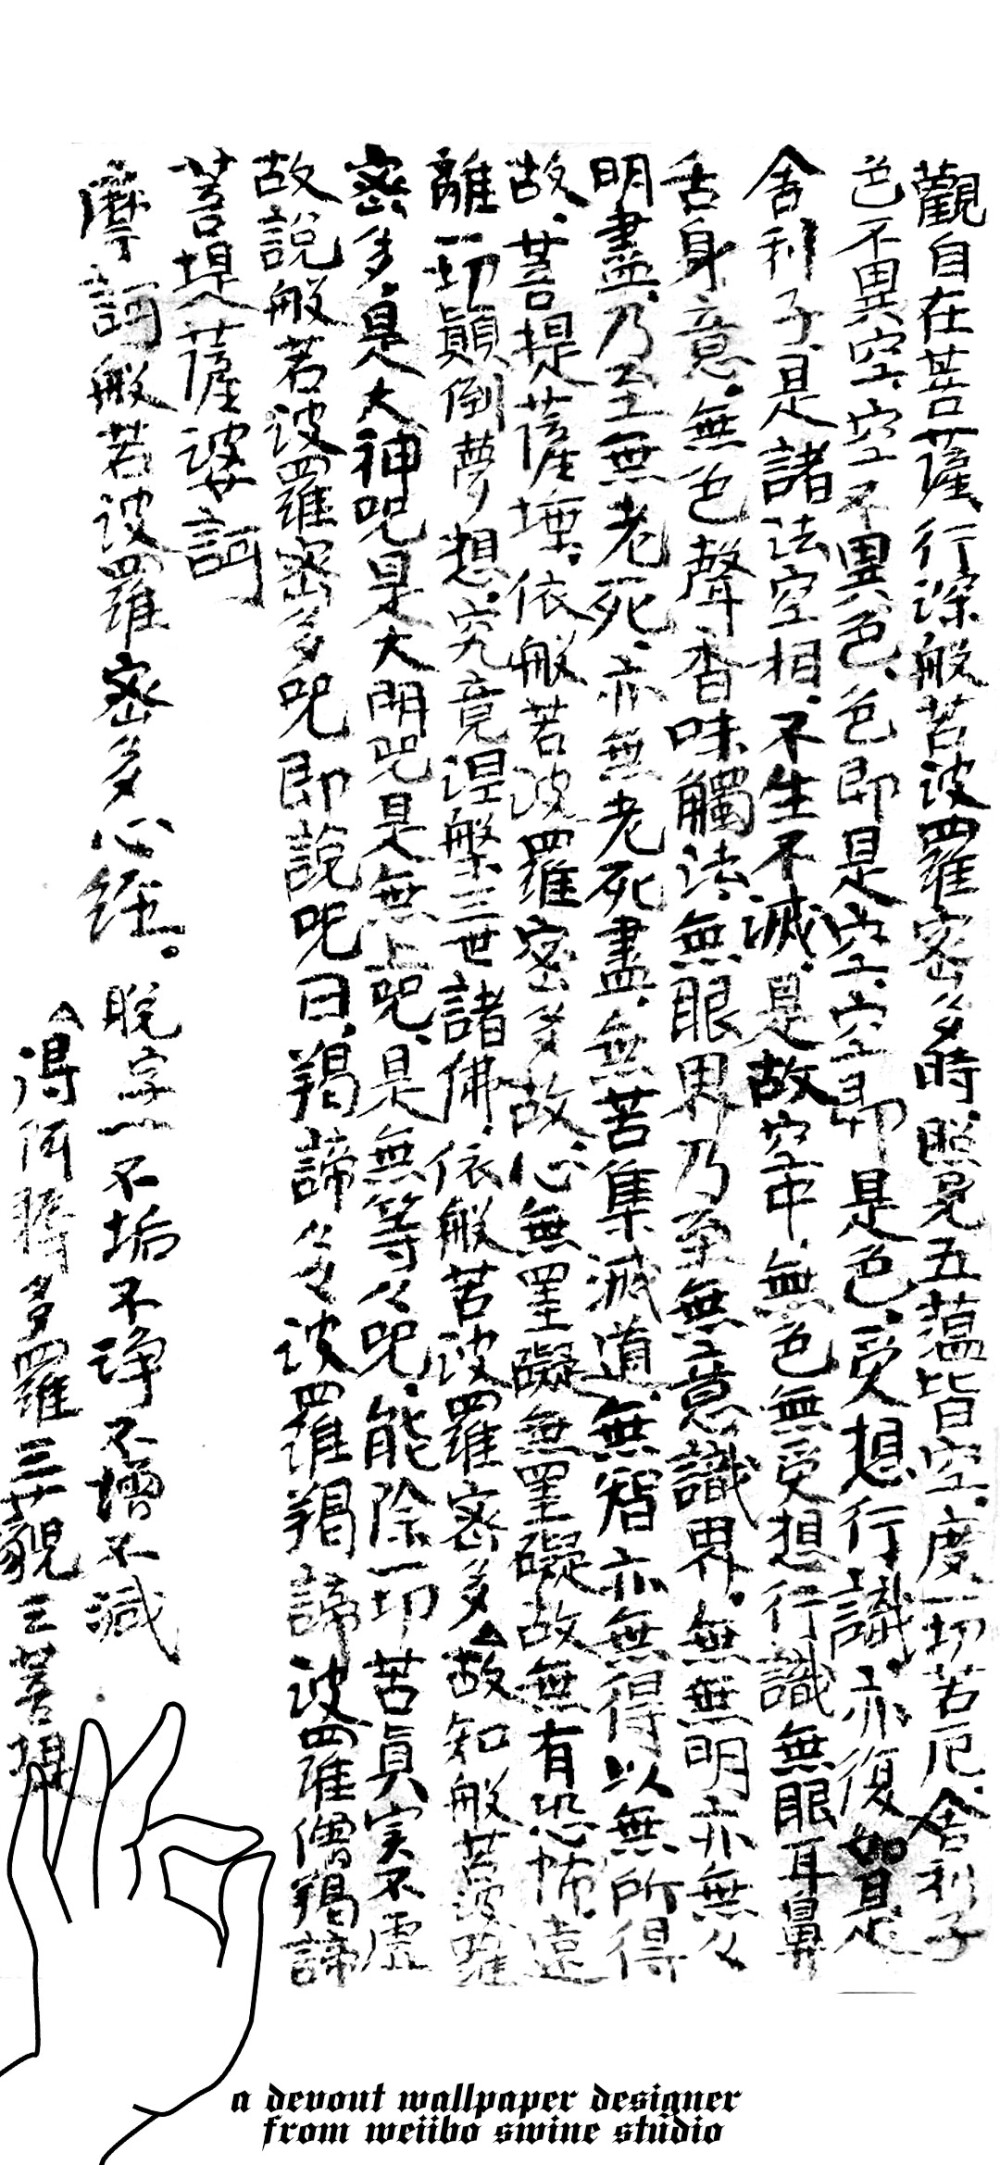 觀自在菩薩行深般若波羅密多時照見五蘊皆空度一切苦厄舍利子
色不異空空不異色色即是空空即是色受想行識亦復如是
舍利子是諸法空相不生不滅是故空中無色無受想行識無眼耳鼻
舌身意無色聲香味觸法無眼界乃至無意識界無無明亦無々
明盡乃至無老死亦無老死盡無苦集滅道無智亦無得以無所得
故菩提薩埵依般若波羅密多故心無罣礙無罣礙故無有恐怖遠
離一切顛倒夢想究竟涅槃三世諸佛依般若波羅密多故知般若波羅
密多是大神呪是大明呪是無上呪是無等々呪能除一切苦真实不虛
故說般若波羅密多呪即說呪曰羯諦々々波羅羯諦波羅僧羯諦
菩提薩婆訶
摩訶般若波羅密多心經。
脫字一不垢不淨不增不減
得阿耨多羅三藐三菩提
a devout wallpaper designer
from weiibo swine studio